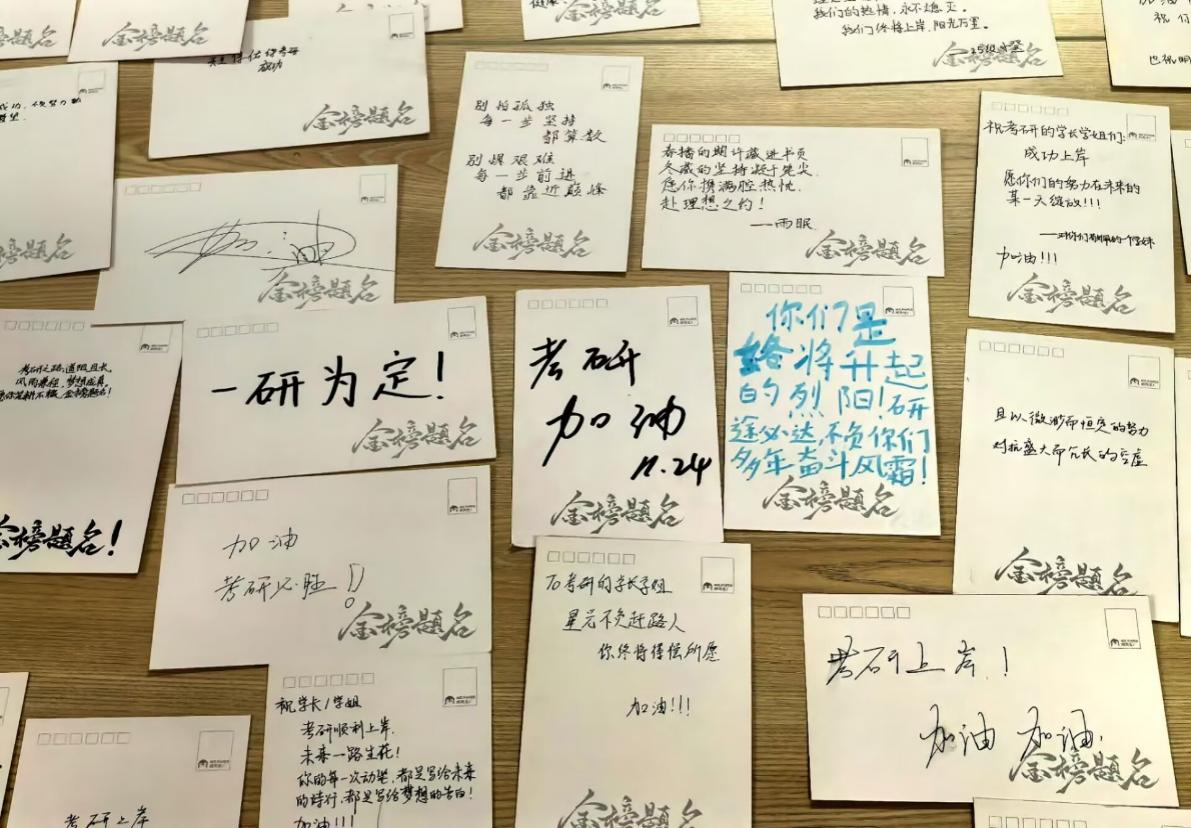 我们的热情,永不熄灭。
我们终将上岸,阳光万里。
金榜题名
金榜题名
金榜题名
成功
金榜题名
别怕孤独
每一步坚持
都算数
别惧艰难
每一步前进
都靠近巅峰
金榜题名
春播的期许藏进书页
冬藏的坚持凝于笔尖
愿你携满腔热忱,
赴理想之约!
——雨眠
金榜题名
祝考研的学长学姐们:
成功上岸
愿你们的努力在未来的
某一天绽放!!!
加油!!!
金榜题名
加油
金榜题名
考研之路,道阻且长,
金榜题名!
一研为定!
金榜题名
考研
加油
11.24
金榜题名
你们是
终将升起
的烈阳!研
途必达,不负你们
多年奋斗风霜!
金榜题名
且以微渺而恒定的努力
对抗盛大而冗长的空虚
金榜题名
加油
考研必胜!
金榜题名
To考研的学长学姐
星光不负赶路人
你终将得偿所愿
加油!!!
金榜题名
考研上岸!
加油 加油
金榜题名
祝学长/学姐
考研顺利上岸,
未来一路生花!
你的每一次动笔,都是写给未来
的诗行,都是写给梦想的告白!
加油!!!
考研上岸